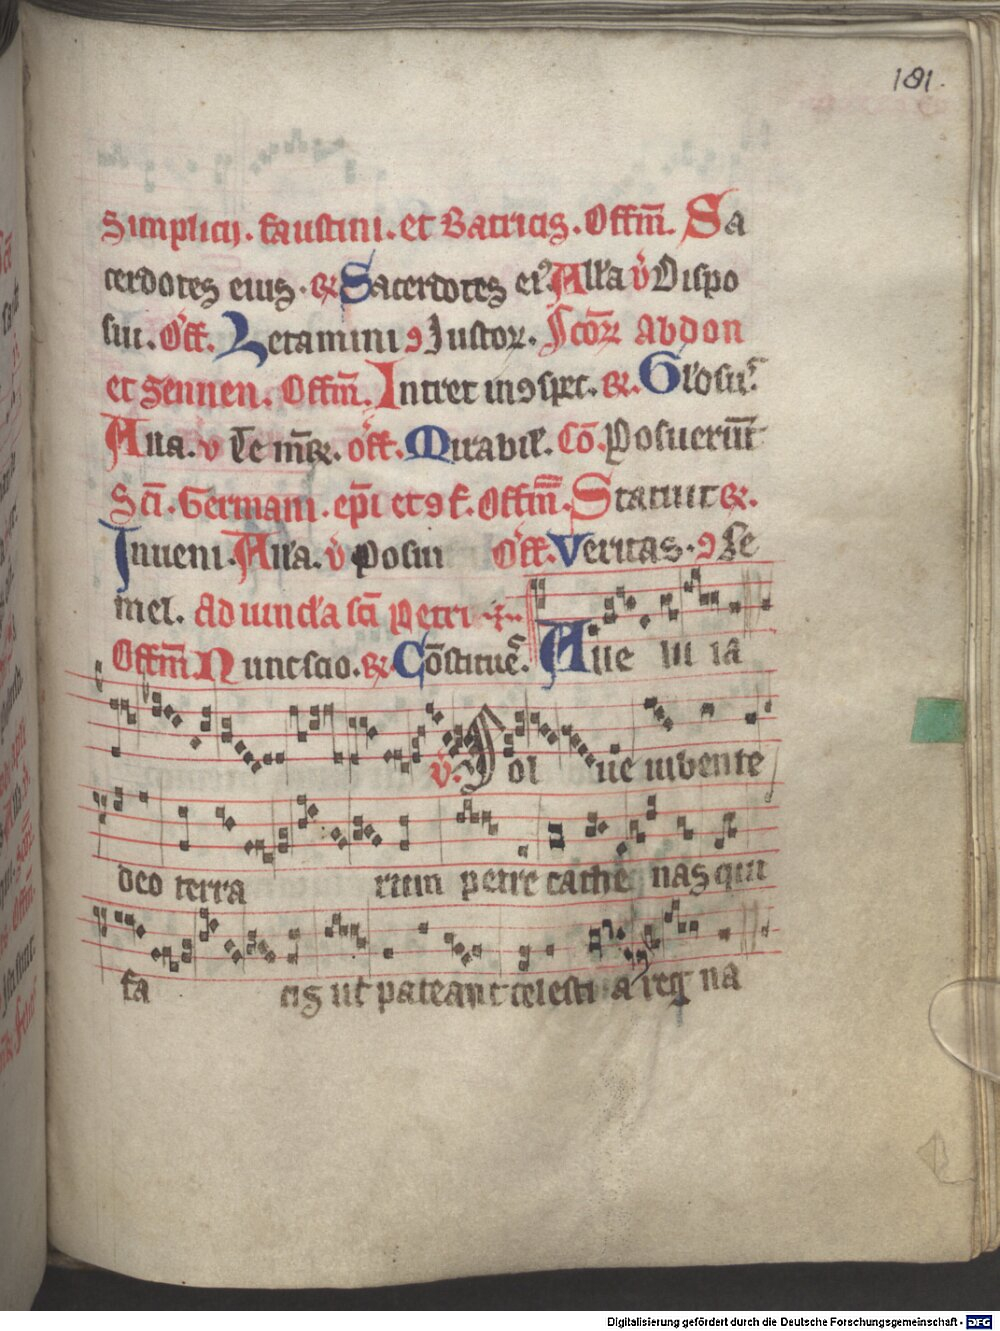 181.
Simplicij. faustini. et Batricis. Offm̄. Sa
cerdotes eius. R̃ Sacerdotes ei9 Alla v̇ Dispo
sui. Off. Letamini 9 Justoꝝ. Scōꝝ Abdon
et Sennen. Offm̄. Intret in 9spec. R̃. Glosus
Alla. v̇ Te mr̄. off. Mirabil. Cō. Posuerūt
Scī. Germani. ep̄i et 9f. Offm̄. Statuit R̃.
Inueni. Alla. v̇ Posui Off. Veritas. 9 Se
mel. Ad uincla scī Petri
Offm̄. Nunc scio. R̃ Cōstitues. Alle lu ia
v̇. Sol ue iubente
deo terra rum petre cathe nas qui
fa cis ut pateant celesti a reg na
Digitalisierung gefördert durch die Deutsche Forschungsgemeinschaft - DFG